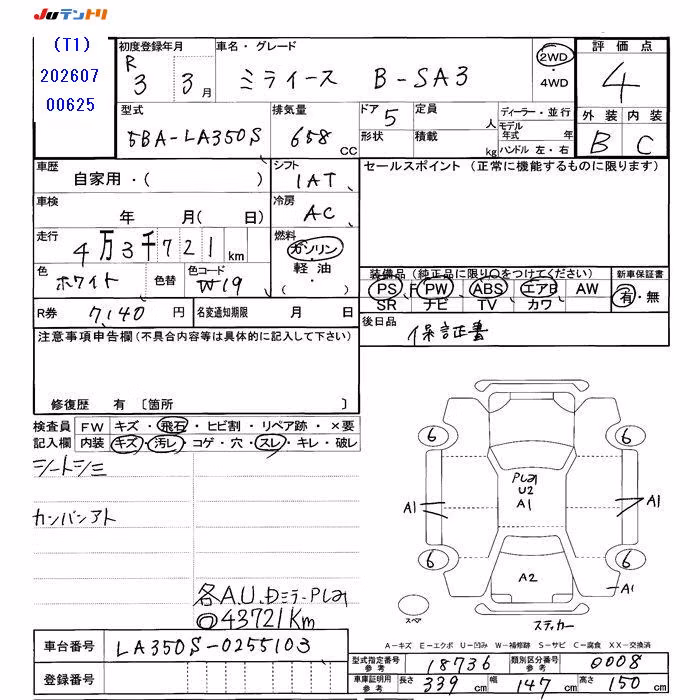 JUテントリ
(T1)
202607
00625
初度登録年月
R
3 3月
車名・グレード
ミライース B-SA3
2WD
・
4WD
評価点
4
外装 内装
B C
型式
5BA-LA350S
排気量
658 CC
ドア 5
形状
定員 人
積載 kg
ディーラー・並行
モデル年式 年
ハンドル 左・右
車歴
自家用・( )
シフト
1AT
車検
年 月( 日)
冷房
AC
走行
4万3千721km
燃料
ガソリン
軽油
( )
色
ホワイト
色替
色コード
W19
R券 7,140 円
名変通知期限 月 日
セールスポイント (正常に機能するものに限ります)
装備品(純正品に限り○をつけてください)
PS F PW ABS エアB AW
SR ナビ TV カワ
新車保証書
有・無
後日品
保証書
注意事項申告欄(不具合内容等は具体的に記入して下さい)
修復歴 有 〔箇所 〕
検査員 記入欄
FW キズ・飛石・ヒビ割・リペア跡・×要
内装 キズ・汚レ・コゲ・穴・スレ・キレ・破レ
シートシミ
カンバンアト
各A.U.
43721Km
6 6
A1
U2
A1
A1
6 6
A2
A1
スペア
ステッカー
A-キズ E-エクボ U-凹み W-補修跡 S-サビ C-腐食 XX-交換済
車台番号 LA350S-0255103
登録番号
型式指定番号 参考 18736
類別区分番号 参考 0008
車庫証明用 参考 長さ 339 cm 幅 147 cm 高さ 150 cm